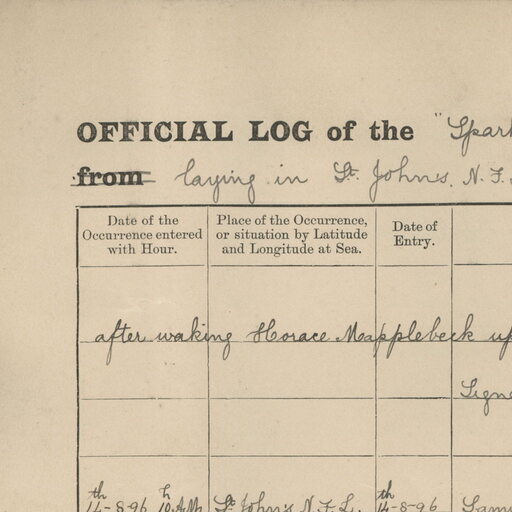 OFFICIAL LOG of the "Spark
from laying in St. John's. N.F.
Date of the Occurrence entered with Hour.
Place of the Occurrence, or situation by Latitude and Longitude at Sea.
Date of Entry.
after waking Horace Mapplebeck up
Signe
14th-8-96 10h A.M. St. John's N.F.L. 14th-8-96 Samu